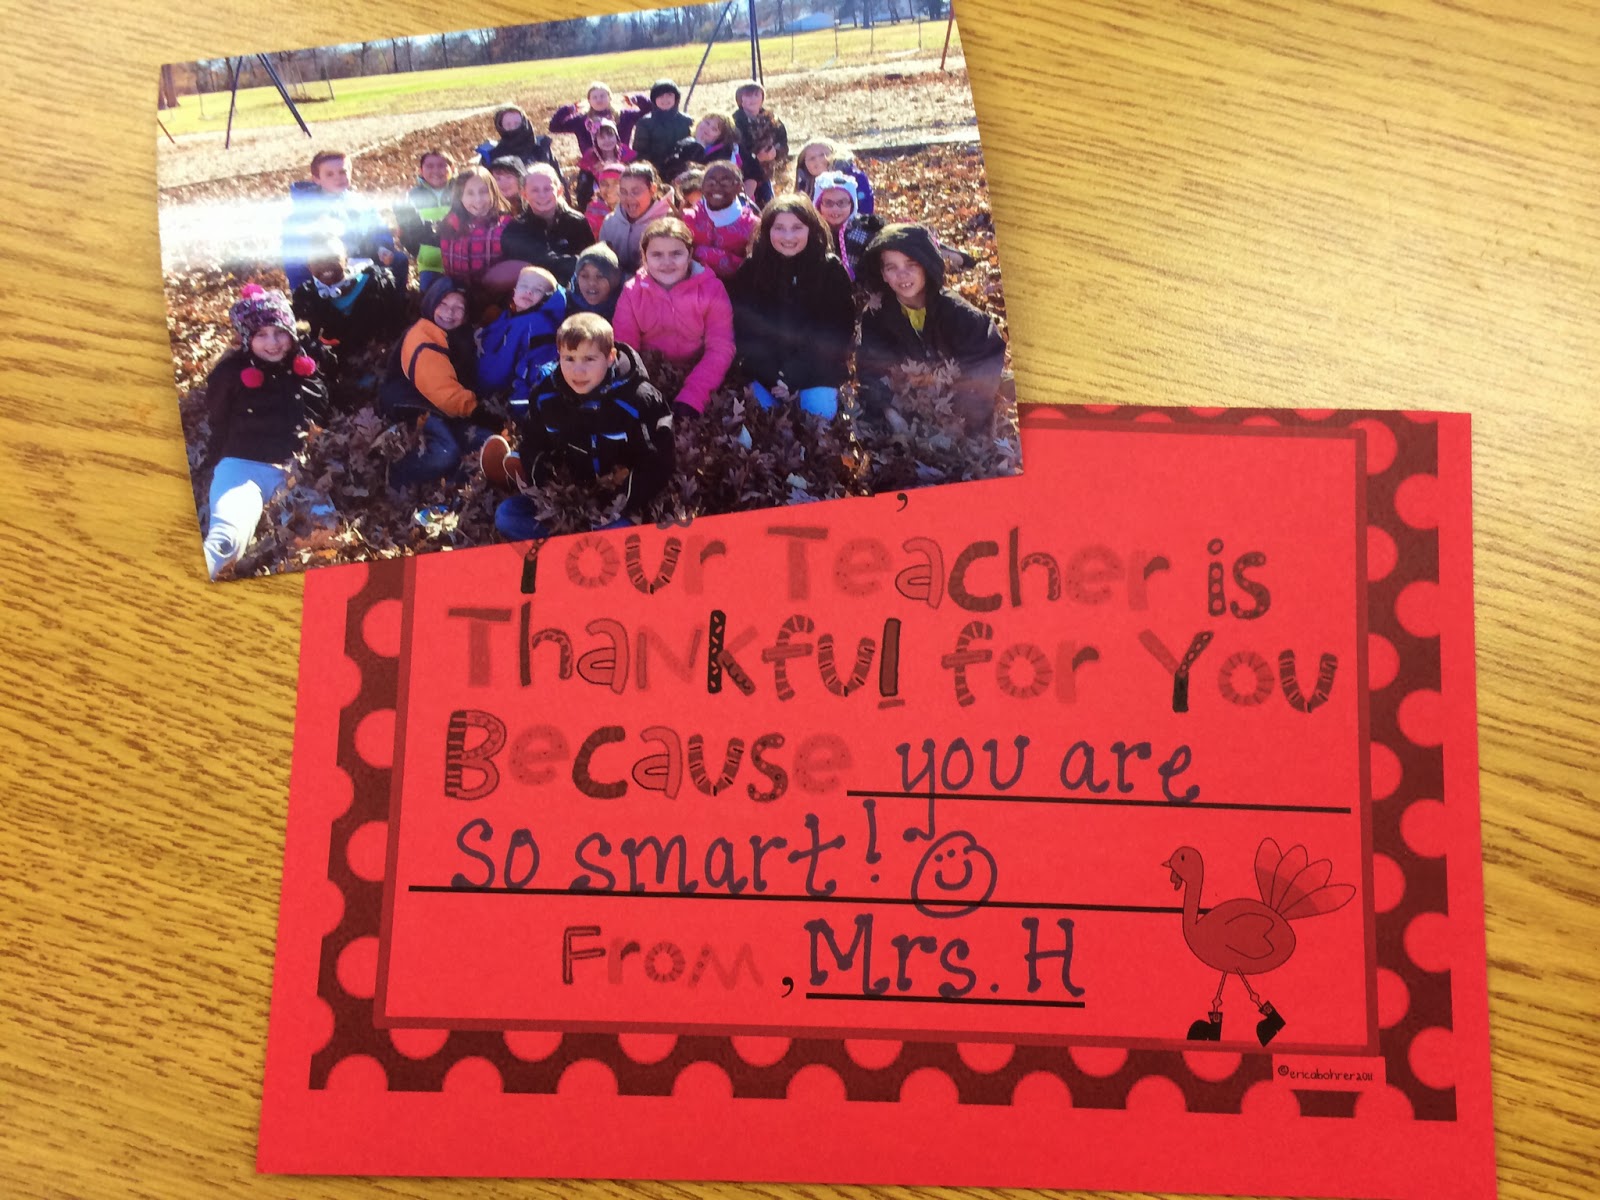 ,
Your Teacher is
Thankful for You
Because you are
so smart!
From, Mrs. H
©ericabohrer2011